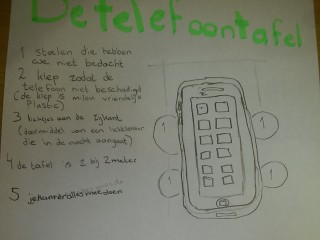 De telefoontafel
1 stoelen die hebben
we niet bedacht
2 klep zodat de
telefoon niet beschadigd
(de klep is milieu vriendelijk
Plastic)
3 bakjes aan de zijkant
(daarmidde van een
die in de nacht aangaat)
4 de tafel is 2 bij 2 meter
5 je kan er alles mee doen
1
1
1
1